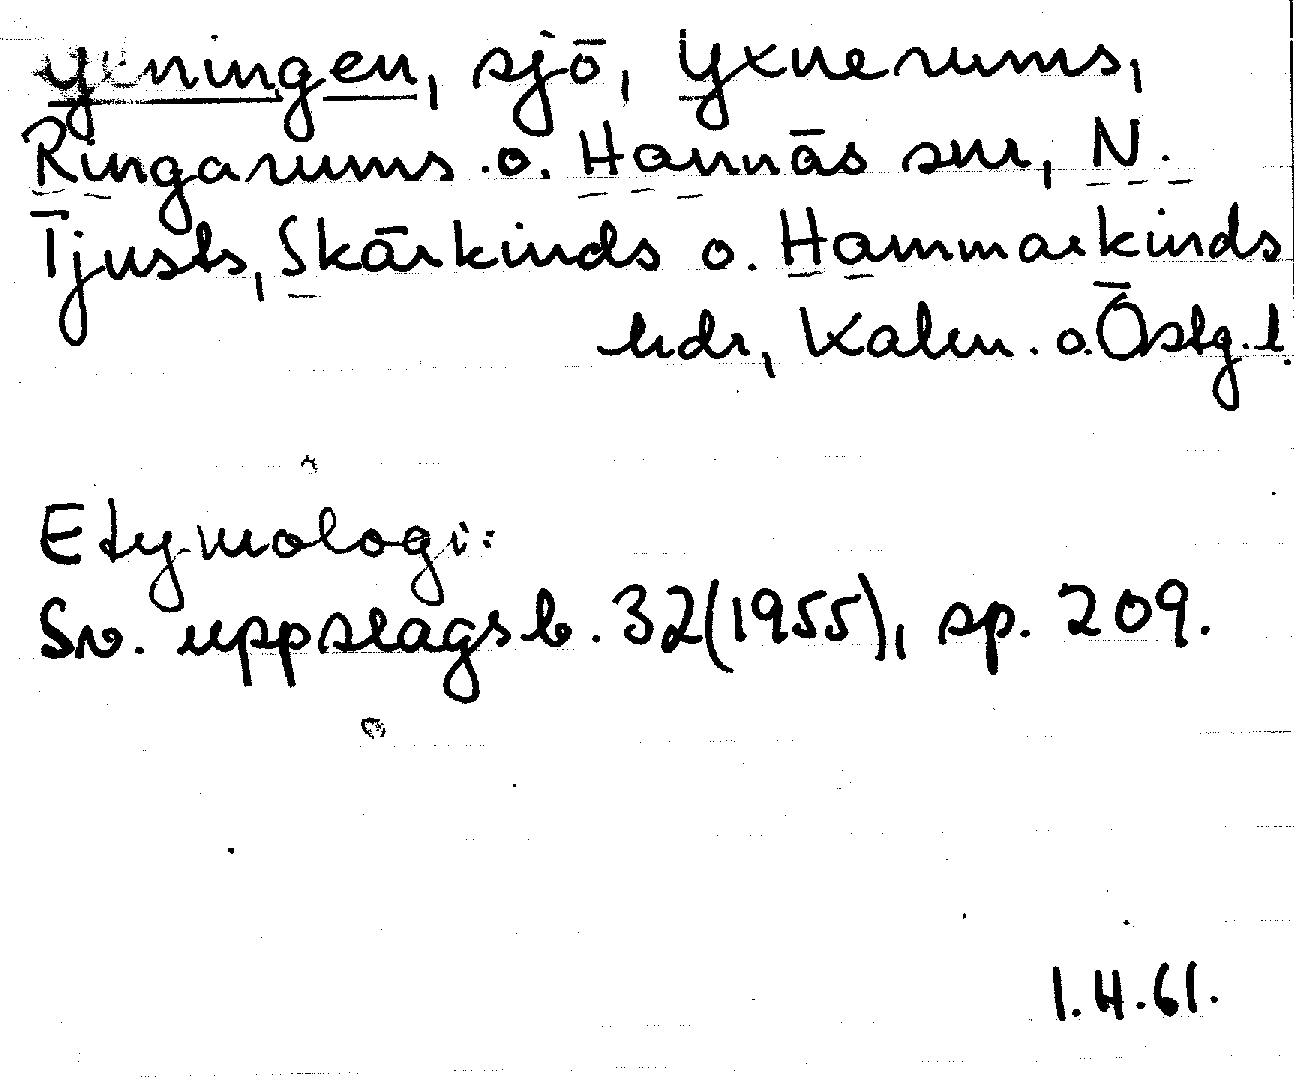 Yxningen, sjö, Yxnerums,
Ringarums o. Hannäs snr, N.
Tjusts, Skärkinds o. Hammarkinds
hdr, Kalm. o. Östg. l.
Etymologi:
Sv. uppslagsb. 32(1955), sp. 209.
1.4.61.